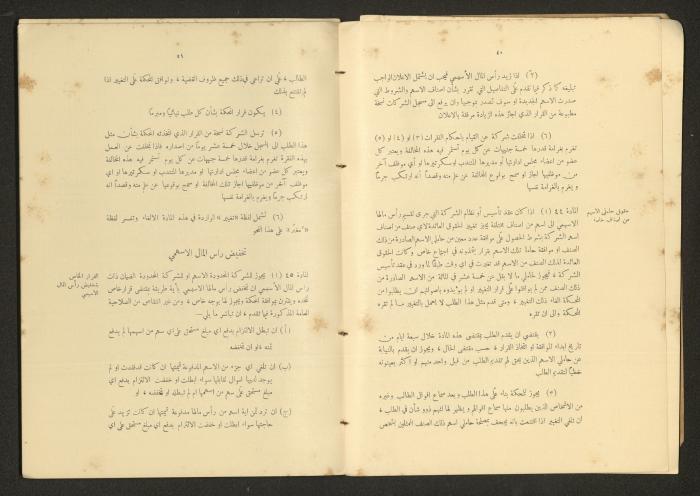 ٤٠
(٢) اذا زيد رأس المال الأسهمي فيجب ان يشتمل الاعلان الواجب
تبليغه كما ذكر فيما تقدم على التفاصيل التي تقرر بشأن اصناف الاسهم والشروط التي
صدرت الاسهم الجديدة او سوف تصدر بموجبها وان يرفع الى مسجل الشركات نسخة
مطبوعة من القرار الذي اجاز هذه الزيادة مرفقة بالاعلان
(٦) اذا تخلفت شركة عن القيام باحكام الفقرات (٣) او (٤) او (٥)
تغرم بغرامة قدرها خمسة جنيهات عن كل يوم تستمر فيه هذه المخالفة ويعتبر كل
عضو من اعضاء مجلس ادارتها او مديرها المنتدب او سكرتيرها او أي موظف آخر
من موظفيها اجاز او سمح بوقوع المخالفة عن علم منه وقصداً انه ارتكب جرماً
ويغرم بالغرامة نفسها
حقوق حاملي الاسهم
من اصناف خاصة
المادة ٤٤ (١) اذا كان عقد تأسيس أو نظام الشركة التي جرى تقسيم رأس مالها
الاسهمي الى اسهم من اصناف مختلفة يجيز تغيير الحقوق العائدة لاي صنف من اصناف
اسهم الشركة بشرط الحصول على موافقة عدد معين من حاملي الاسهم الصادرة من ذلك
الصنف او موافقة تلك الاسهم بقرار يتخذونه في اجتماع خاص وكانت الحقوق
العائدة لذلك الصنف من الاسهم قد تغيرت في اي وقت طبقاً لما ورد في عقد تأسيس
الشركة ، فيجوز لحاملي ما لا يقل عن خمسة عشر في المائة من الاسهم الصادرة من
ذلك الصنف ممن لم يوافقوا على قرار التغيير او لم يؤيدوه باصواتهم ان يطلبوا من
المحكمة الغاء ذلك التغيير ، ومتى قدم مثل هذا الطلب لا يعمل بالتغيير ما لم تقره
المحكمة والى ان تقره
(٢) يقتضي ان يقدم الطلب بمقتضى هذه المادة خلال سبعة ايام من
تاريخ ابداء الموافقة او اتخاذ القرار ، حسب مقتضى الحال ، ويجوز ان يقدم بالنيابة
عن حاملي الاسهم الذين يحق لهم تقديم الطلب من قبل واحد منهم او اكثر يعينونه
خطياً لتقديم الطلب
(٣) يجوز للمحكمة بناء على هذا الطلب وبعد سماع اقوال الطالب وغيره
من الاشخاص الذين يطلبون منها سماع اقوالهم ويظهر لها انهم ذوو شأن في الطلب ،
ان تلغي التغيير اذا اقتنعت بانه يجحف بمصلحة حاملي اسهم ذلك الصنف الممثلين بشخص
٤١
الطالب ، على ان تراعي في ذلك جميع ظروف القضية ، وتوافق المحكمة على التغيير اذا
لم تقتنع بذلك
(٤) يكون قرار المحكمة بشأن كل طلب نهائياً ومبرماً
(٥) ترسل الشركة نسخة من القرار الذي تتخذه المحكمة بشأن مثل
هذا الطلب الى المسجل خلال خمسة عشر يوماً من اصداره فاذا تخلفت عن العمل
بهذه الفقرة تغرم بغرامة قدرها خمسة جنيهات عن كل يوم تستمر فيه هذه المخالفة
ويعتبر كل عضو من اعضاء مجلس ادارتها او مديرها المنتدب او سكرتيرها او اي
موظف آخر من موظفيها اجاز تلك المخالفة او سمح بوقوعها عن علم منه وقصداً انه
ارتكب جرماً ويغرم بالغرامة نفسها
(٦) تشمل لفظة «تغيير» الواردة في هذه المادة الالغاء وتفسر لفظة
«مغيَّر» على هذا النحو
تخفيض رأس المال الاسهمي
القرار الخاص
بتخفيض رأس المال
الاسهمي
المادة ٤٥ (١) يجوز للشركة المحدودة الاسهم او للشركة المحدودة الضمان ذات
رأس المال الأسهمي ان تخفض رأس مالها الاسهمي بأية طريقة بمقتضى قرار خاص
تتخذه ويقترن بموافقة المحكمة ويجوز لها بوجه خاص ، ومن غير انتقاص من الصلاحية
العامة المذكورة فيما تقدم ، ان تباشر ما يلي—
(أ) ان تبطل الالتزام بدفع اي مبلغ مستحق على أي سهم من اسهمها لم يدفع
ثمنه ، او ان تخفضه
(ب) ان تلغي اي جزء من الاسهم المدفوعة قيمتها ان كانت قد فقدت او لم
يوجد لديها اموال تقابلها سواء ابطلت او خفضت الالتزام بدفع اي
مبلغ مستحق على سهم من اسهمها ام لم تبطله او تخفضه ، او
(ج) ان ترد ثمن اية اسهم من رأس مالها مدفوعة قيمتها ان كانت تزيد على
حاجتها سواء ابطلت او خفضت الالتزام بدفع اي مبلغ مستحق على اي